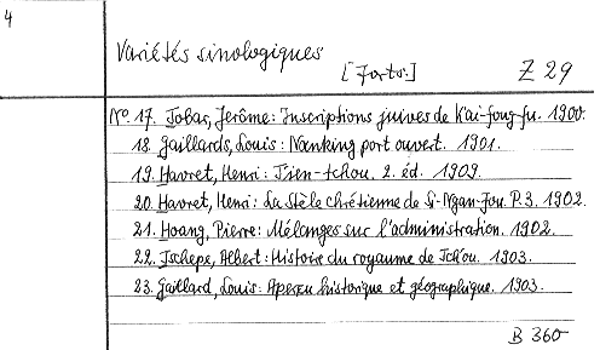 4
Variétés sinologiques
[Forts.]
Z 29
No. 17. Tobar, Jerôme: Inscriptions juives de K'ai-fong-fu. 1900.
18. Gaillards, Louis: Nanking port ouvert. 1901.
19. Havret, Henri: T'ien-tchou. 2. éd. 1909.
20. Havret, Henri: La Stèle chrétienne de Si-Ngan-Fou. P. 3. 1902.
21. Hoang, Pierre: Mélanges sur l'administration. 1902.
22. Tschepe, Albert: Histoire du royaume de Tch'ou. 1903.
23. Gaillard, Louis: Aperçu historique et géographique. 1903.
B 360